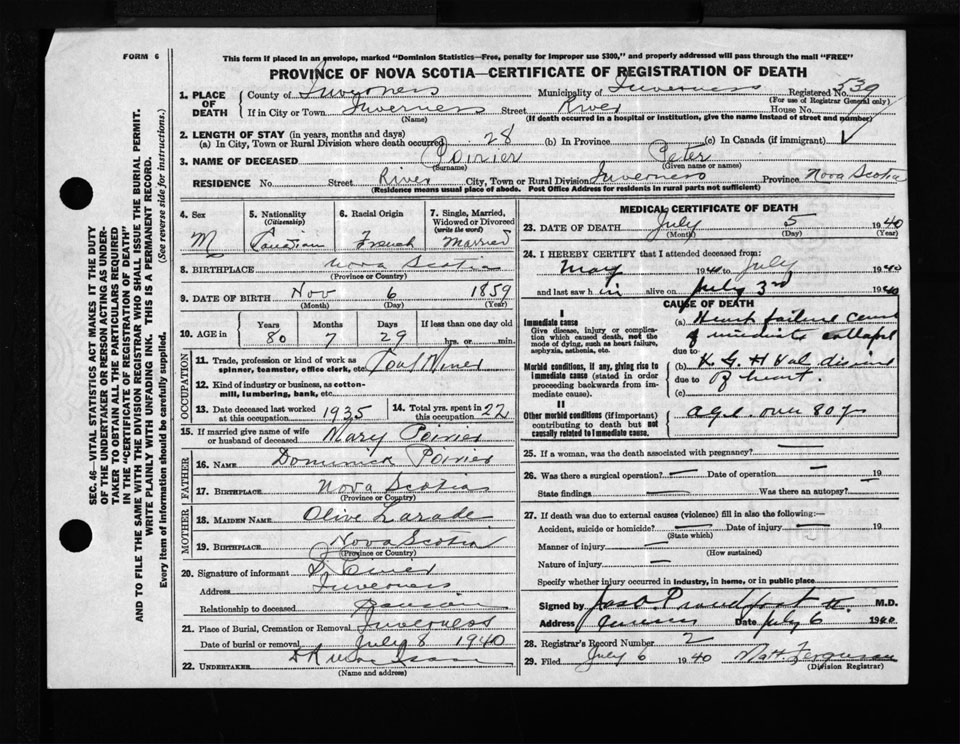 FORM 6
This form if placed in an envelope, marked "Dominion Statistics—Free, penalty for improper use $300," and properly addressed will pass through the mail "FREE"
PROVINCE OF NOVA SCOTIA—CERTIFICATE OF REGISTRATION OF DEATH
SEC. 46—VITAL STATISTICS ACT MAKES IT THE DUTY
OF THE UNDERTAKER OR PERSON ACTING AS UNDER-
TAKER TO OBTAIN ALL THE PARTICULARS REQUIRED
IN THE "CERTIFICATE OF REGISTRATION OF DEATH"
AND TO FILE THE SAME WITH THE DIVISION REGISTRAR WHO SHALL ISSUE THE BURIAL PERMIT.
WRITE PLAINLY WITH UNFADING INK. THIS IS A PERMANENT RECORD.
Every item of information should be carefully supplied. (See reverse side for instructions.)
1. PLACE OF DEATH County of Inverness Municipality of Inverness Registered No. 539
(For use of Registrar General only)
If in City or Town Inverness Street River House No.
(Name) (If death occurred in a hospital or institution, give the name instead of street and number)
2. LENGTH OF STAY (in years, months and days)
(a) In City, Town or Rural Division where death occurred 28 (b) In Province (c) In Canada (if immigrant)
3. NAME OF DECEASED Poirier Peter
(Surname) (Given name or names)
RESIDENCE No. Street River City, Town or Rural Division Inverness Province Nova Scotia
(Residence means usual place of abode. Post Office Address for residents in rural parts not sufficient)
4. Sex M
5. Nationality (Citizenship) Canadian
6. Racial Origin French
7. Single, Married, Widowed or Divorced (write the word) Married
8. BIRTHPLACE Nova Scotia
(Province or Country)
9. DATE OF BIRTH Nov 6 1859
(Month) (Day) (Year)
10. AGE in Years 80 Months 7 Days 29 If less than one day old hrs. or min.
OCCUPATION
11. Trade, profession or kind of work as spinner, teamster, office clerk, etc. Coal Miner
12. Kind of industry or business, as cotton-mill, lumbering, bank, etc.
13. Date deceased last worked at this occupation 1935 14. Total yrs. spent in this occupation 22
15. If married give name of wife or husband of deceased Mary Poirier
FATHER
16. NAME Dominick Poirier
17. BIRTHPLACE Nova Scotia
MOTHER
18. MAIDEN NAME Olive Larade
19. BIRTHPLACE Nova Scotia
(Province or Country)
20. Signature of informant
Address Inverness
Relationship to deceased
21. Place of Burial, Cremation or Removal Inverness
Date of burial or removal July 8 1940
22. UNDERTAKER
(Name and address)
MEDICAL CERTIFICATE OF DEATH
23. DATE OF DEATH July 5 1940
(Month) (Day) (Year)
24. I HEREBY CERTIFY that I attended deceased from:
May 1940 to July 1940
and last saw him alive on July 3rd 1940
CAUSE OF DEATH
I
Immediate cause
Give disease, injury or complication which caused death, not the mode of dying, such as heart failure, asphyxia, asthenia, etc.
(a) Heart failure
of immediate collapse
due to
Morbid conditions, if any, giving rise to immediate cause (stated in order proceeding backwards from immediate cause).
(b)
due to of heart.
(c)
II
Other morbid conditions (if important) contributing to death but not causally related to immediate cause.
age over 80 yrs
25. If a woman, was the death associated with pregnancy?
26. Was there a surgical operation? — Date of operation — 19
State findings — Was there an autopsy?
27. If death was due to external causes (violence) fill in also the following:—
Accident, suicide or homicide? — Date of injury — 19
(State which)
Manner of injury —
(How sustained)
Nature of injury —
Specify whether injury occurred in industry, in home, or in public place
Signed by M.D.
Address Date July 6 1940
28. Registrar's Record Number 2
29. Filed July 6 1940 Matt Ferguson
(Division Registrar)